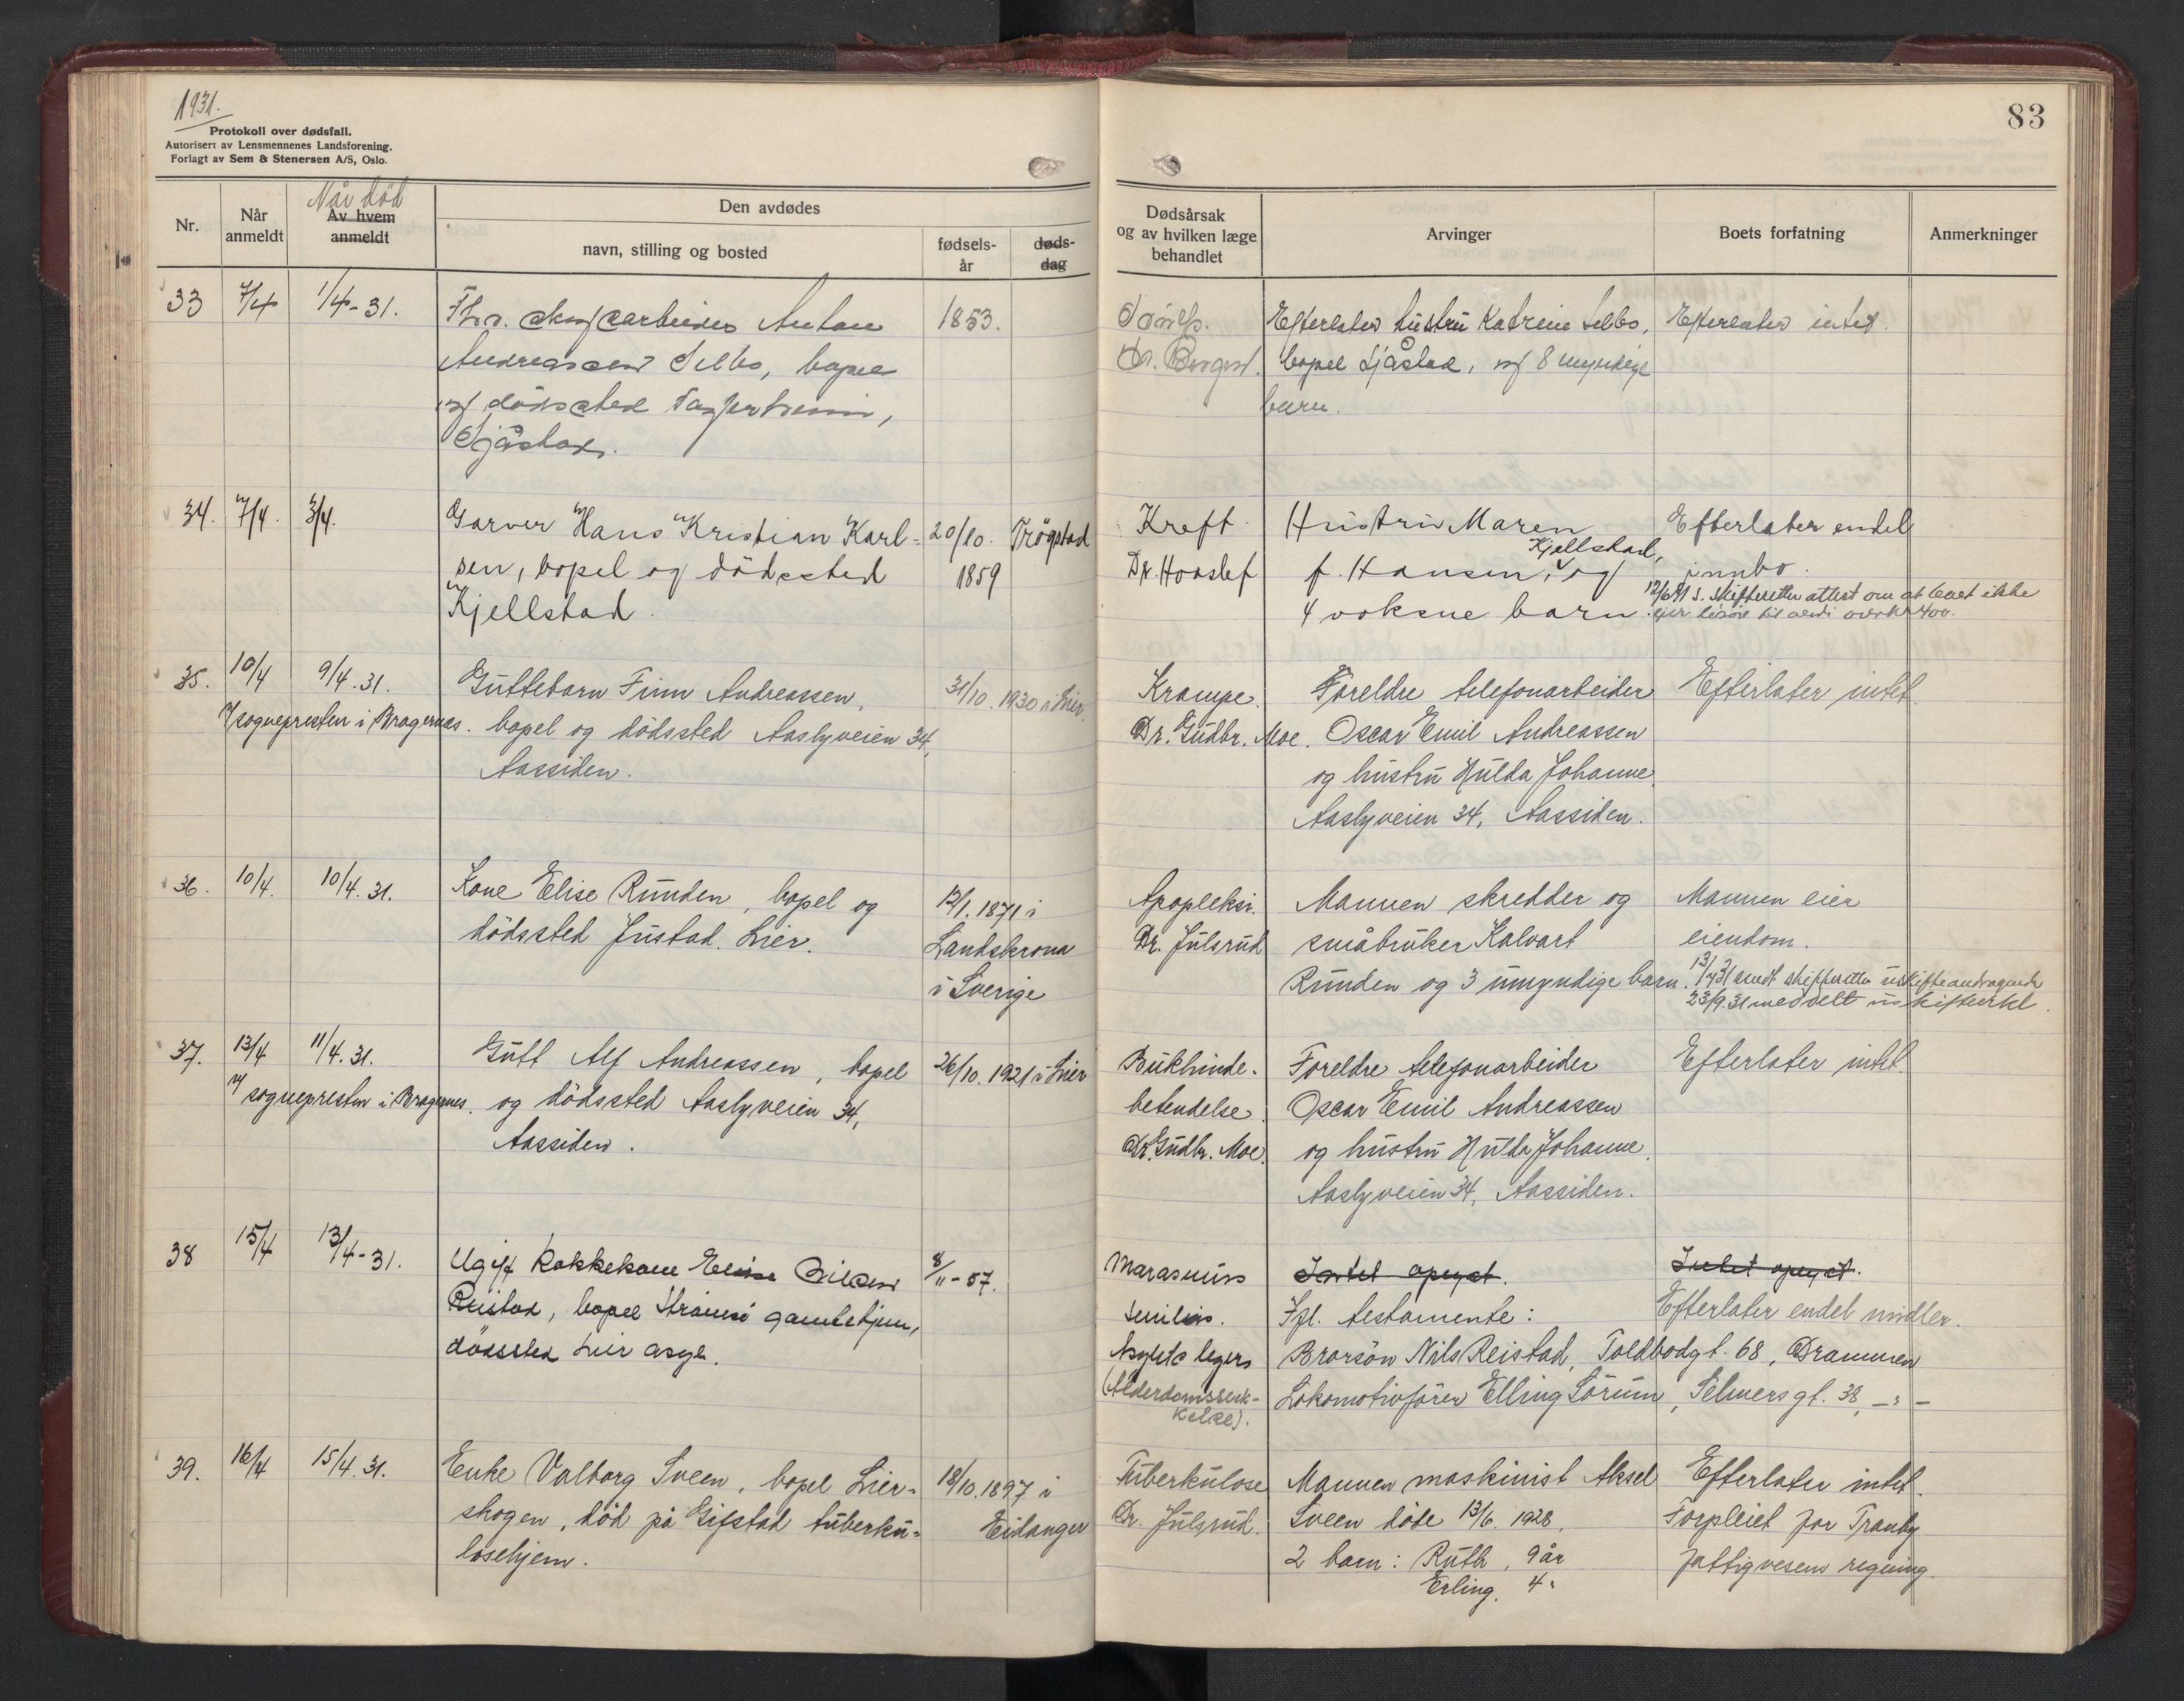 1931.
Protokoll over dødsfall.
Autorisert av Lensmennenes Landsforening.
Forlagt av Sem & Stenersen A/S, Oslo.
Nr.
Når anmeldt
Når död
Av hvem anmeldt
Den avdødes
navn, stilling og bosted
fødsels-
år
døds-
dag
33 7/4 1/4-31.
Anton 1853.
Andreassen Selbo, bopel
og dödssted
Sjåstad.
34. 7/4. 3/4.
Garver Hans Kristian Karl- 20/10. Trögstad
sen, bopel og dödssted 1859
Kjellstad.
35. 10/4 9/4.31.
Guttebarn Finn Andreassen, 31/10. 1930 i Lier.
v/ sognepresten i Bragernes. bopel og dödssted Aaslyveien 34,
Aassiden.
36. 10/4. 10/4.31.
Kone Elise Runden, bopel og 12/1. 1871 i
dödssted Justad. Lier. Landskrona
i Sverige
37. 13/4 11/4.31.
Gutt Alf Andreassen, bopel 26/10. 1921 i Lier
v/ sognepresten i Bragernes. og dödssted Aaslyveien 34,
Aassiden.
38 15/4 13/4-31.
Ugift Elise 8/11-57.
Reistad, bopel gamlehjem,
dödssted Lier asyl.
39. 16/4 15/4.31.
Enke Valborg Sveen, bopel Lier- 18/10.1897 i
skogen, död på Gifstad tuberku- Eidanger
losehjem.
83
Dødsårsak
og av hvilken læge
behandlet
Arvinger
Boets forfatning
Anmerkninger
Efterlater hustru Katrine Selbo, Efterlater intet.
bopel Sjåstad, og 8 myndige
barn.
Kreft Hustru Maren Efterlater endel
Kjellstad,
Dr. Hoaslef f. Hansen, og innbo.
12/6 31 s. skifteretten attest om at boet ikke
4 voksne barn. eier lösöre til verdi over kr 400.
Krampe. Foreldre telefonarbeider Efterlater intet.
Dr. Gudbr. Moe. Oscar Emil Andreassen
og hustru Hulda Johanne
Aaslyveien 34, Aassiden.
Apopleksi. Mannen skredder og Mannen eier
Dr. Julsrud småbruker Kalvart eiendom.
Runden og 3 umyndige barn. 13/4 31 sendt skifteretten uskifteandragende
23/9.31 meddelt uskifteerkl.
Bukhinde- Foreldre telefonarbeider Efterlater intet.
betendelse. Oscar Emil Andreassen
Dr. Gudbr. Moe. og hustru Hulda Johanne
Aaslyveien 34, Aassiden.
Marasmus Intet opgat. Intet opgat.
senilis. Ifl. testamente: Efterlater endel midler.
Asylets leges Brorsön Nils Reistad, Toldbodgt. 68, Drammen
(Alderdomssvek- Lokomotivförer Elling Sörum, Selmersgt. 38, -"-
kelse).
Tuberkulose Mannen maskinist Aksel Efterlater intet.
Dr. Julsrud. Sveen döde 13/6. 1928. Forpleiet for Tranby
2 barn: Ruth, 9 år fattigvesens regning.
Erling, 4 "